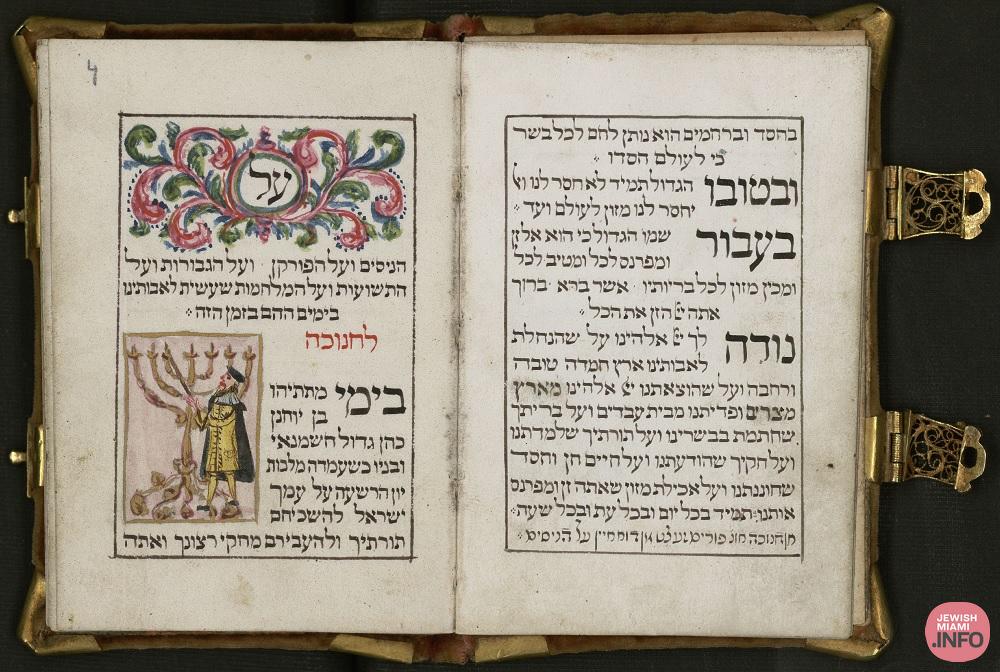 בחסד וברחמים הוא נותן לחם לכל בשר
כי לעולם חסדו
ובטובו הגדול תמיד לא חסר לנו ואל
יחסר לנו מזון לעולם ועד
בעבור שמו הגדול כי הוא אל זן
ומפרנס לכל ומטיב לכל
ומכין מזון לכל בריותיו אשר ברא ברוך
אתה יי הזן את הכל
נודה לך יי אלהינו על שהנחלת
לאבותינו ארץ חמדה טובה
ורחבה ועל שהוצאתנו יי אלהינו מארץ
מצרים ופדיתנו מבית עבדים ועל בריתך
שחתמת בבשרינו ועל תורתיך שלמדתנו
ועל חקיך שהודעתנו ועל חיים חן וחסד
שחוננתנו ועל אכילת מזון שאתה זן ומפרנס
אותנו תמיד בכל יום ובכל עת ובכל שעה
חנוכה פורים על הניסים
4
על
הניסים ועל הפורקן ועל הגבורות ועל
התשועות ועל המלחמות שעשית לאבותינו
בימים ההם בזמן הזה
לחנוכה
בימי מתתיהו
בן יוחנן
כהן גדול חשמנאי
ובניו כשעמדה מלכות
יון הרשעה על עמך
ישראל להשכיחם
תורתיך ולהעבירם מחקי רצונך ואתה
JEWISH
MIAMI
.INFO